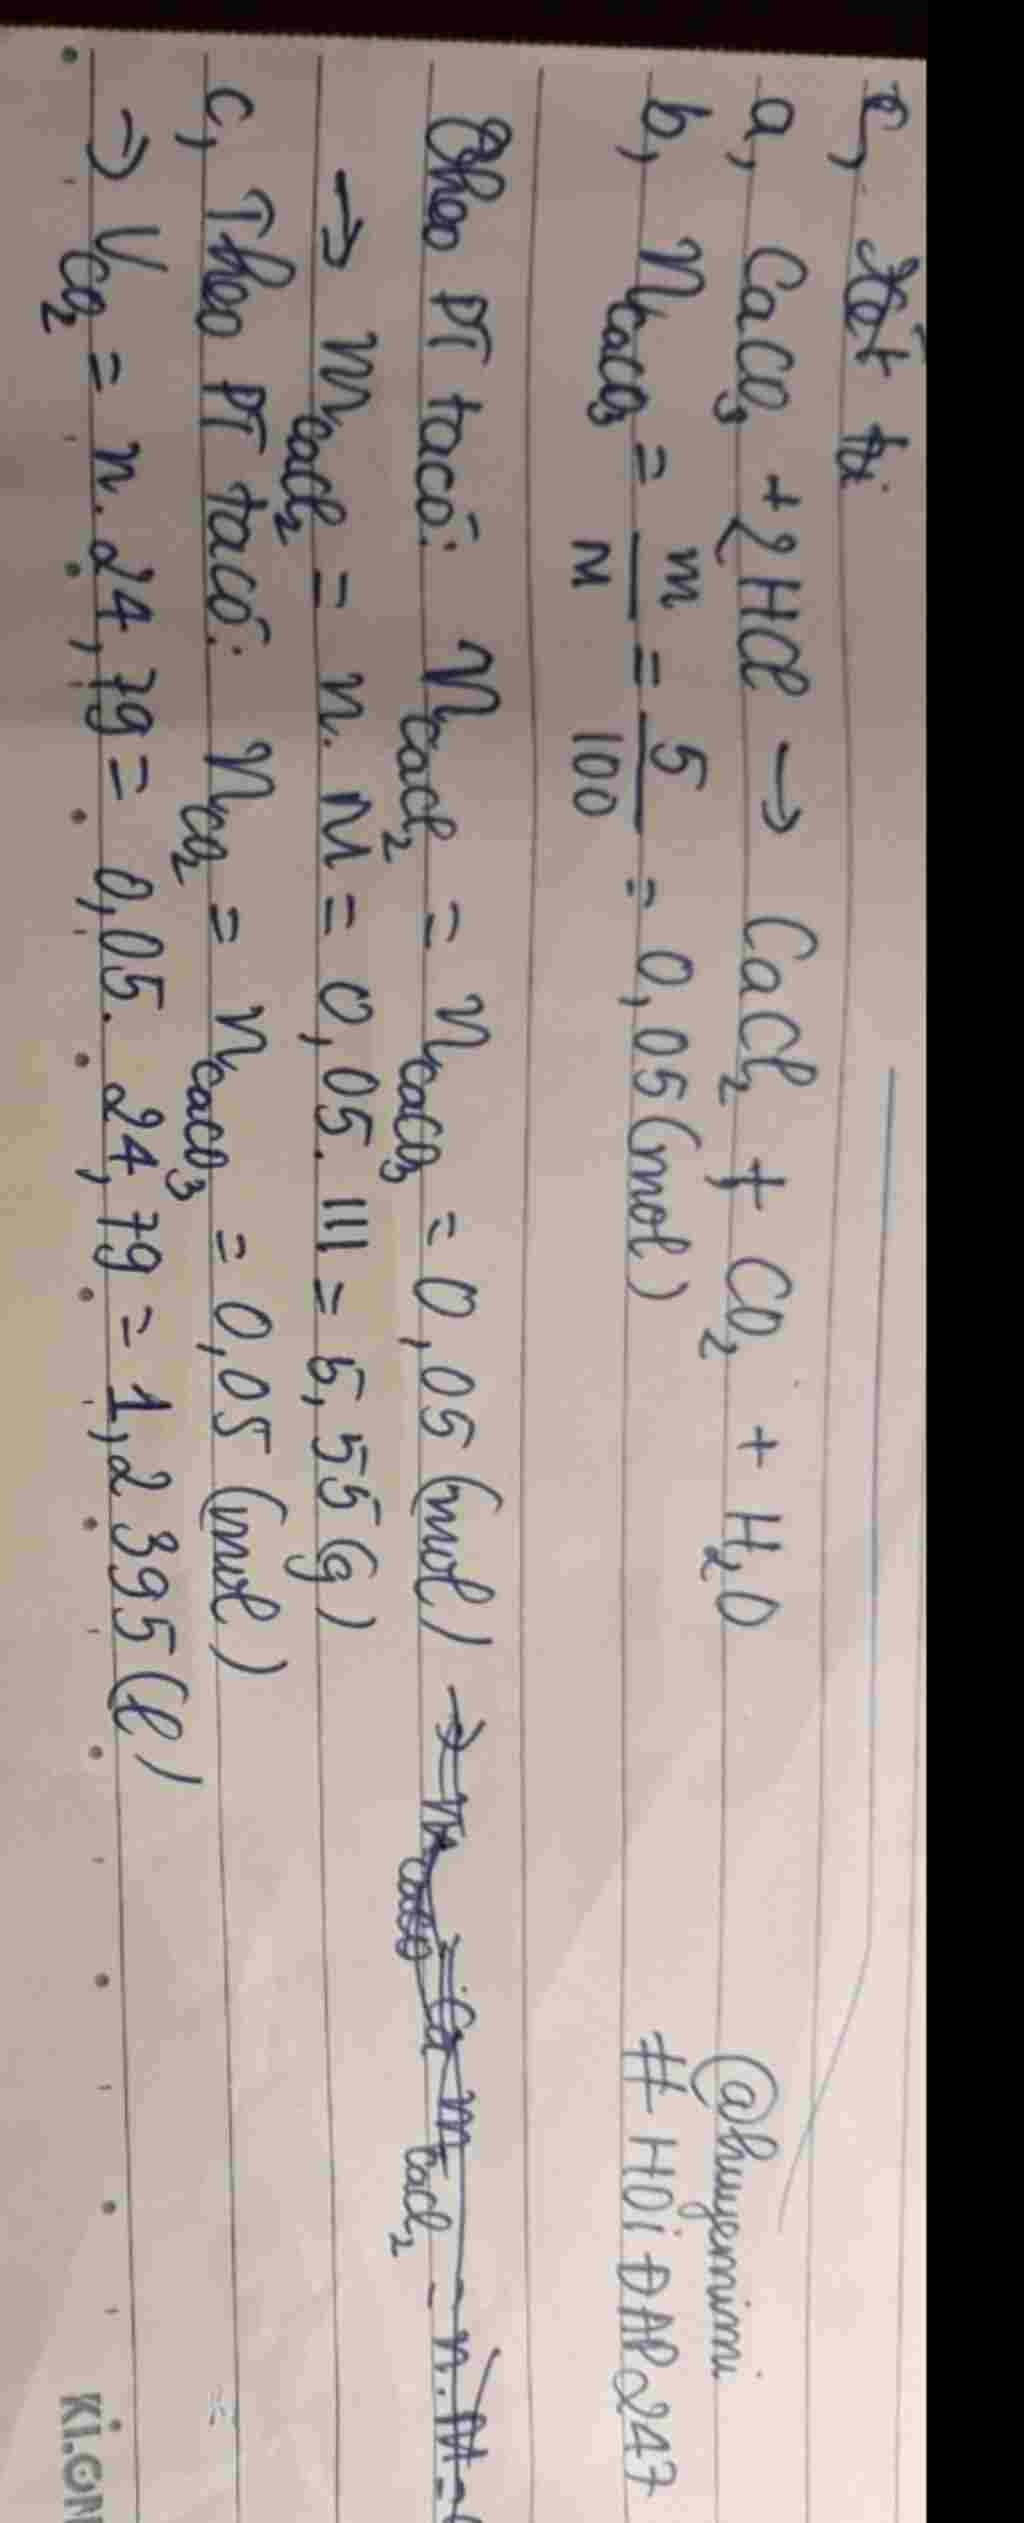 a, CaCO3 + 2HCl → CaCl2 + CO2 + H2O
@huyemimi
b, nCaCO3 = m/M = 5/100 = 0,05 (mol)
# HOi ĐAP247
Theo PT ta có: nCaCl2 = nCaCO3 = 0,05 (mol)
→ mCaCl2 = n. M = 0,05. 111 = 5,55 (g)
c, Theo PT ta có: nCO2 = nCaCO3 = 0,05 (mol)
→ VCO2 = n. 24,79 = 0,05. 24,79 = 1,2395 (l)